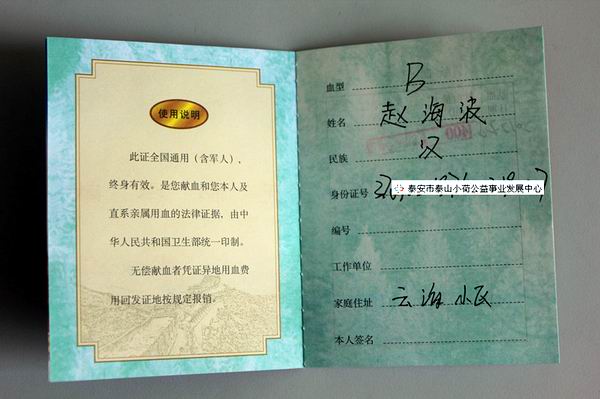 使用说明
此证全国通用（含军人）、
终身有效。是您献血和您本人及
直系亲属用血的法律证据，由中
华人民共和国卫生部统一印制。
无偿献血者凭证异地用血费
用回发证地按规定报销。
血型 B
姓名 赵海波
民族 汉
身份证号
泰安市泰山小荷公益事业发展中心
编号
工作单位
家庭住址 云海小区
本人签名